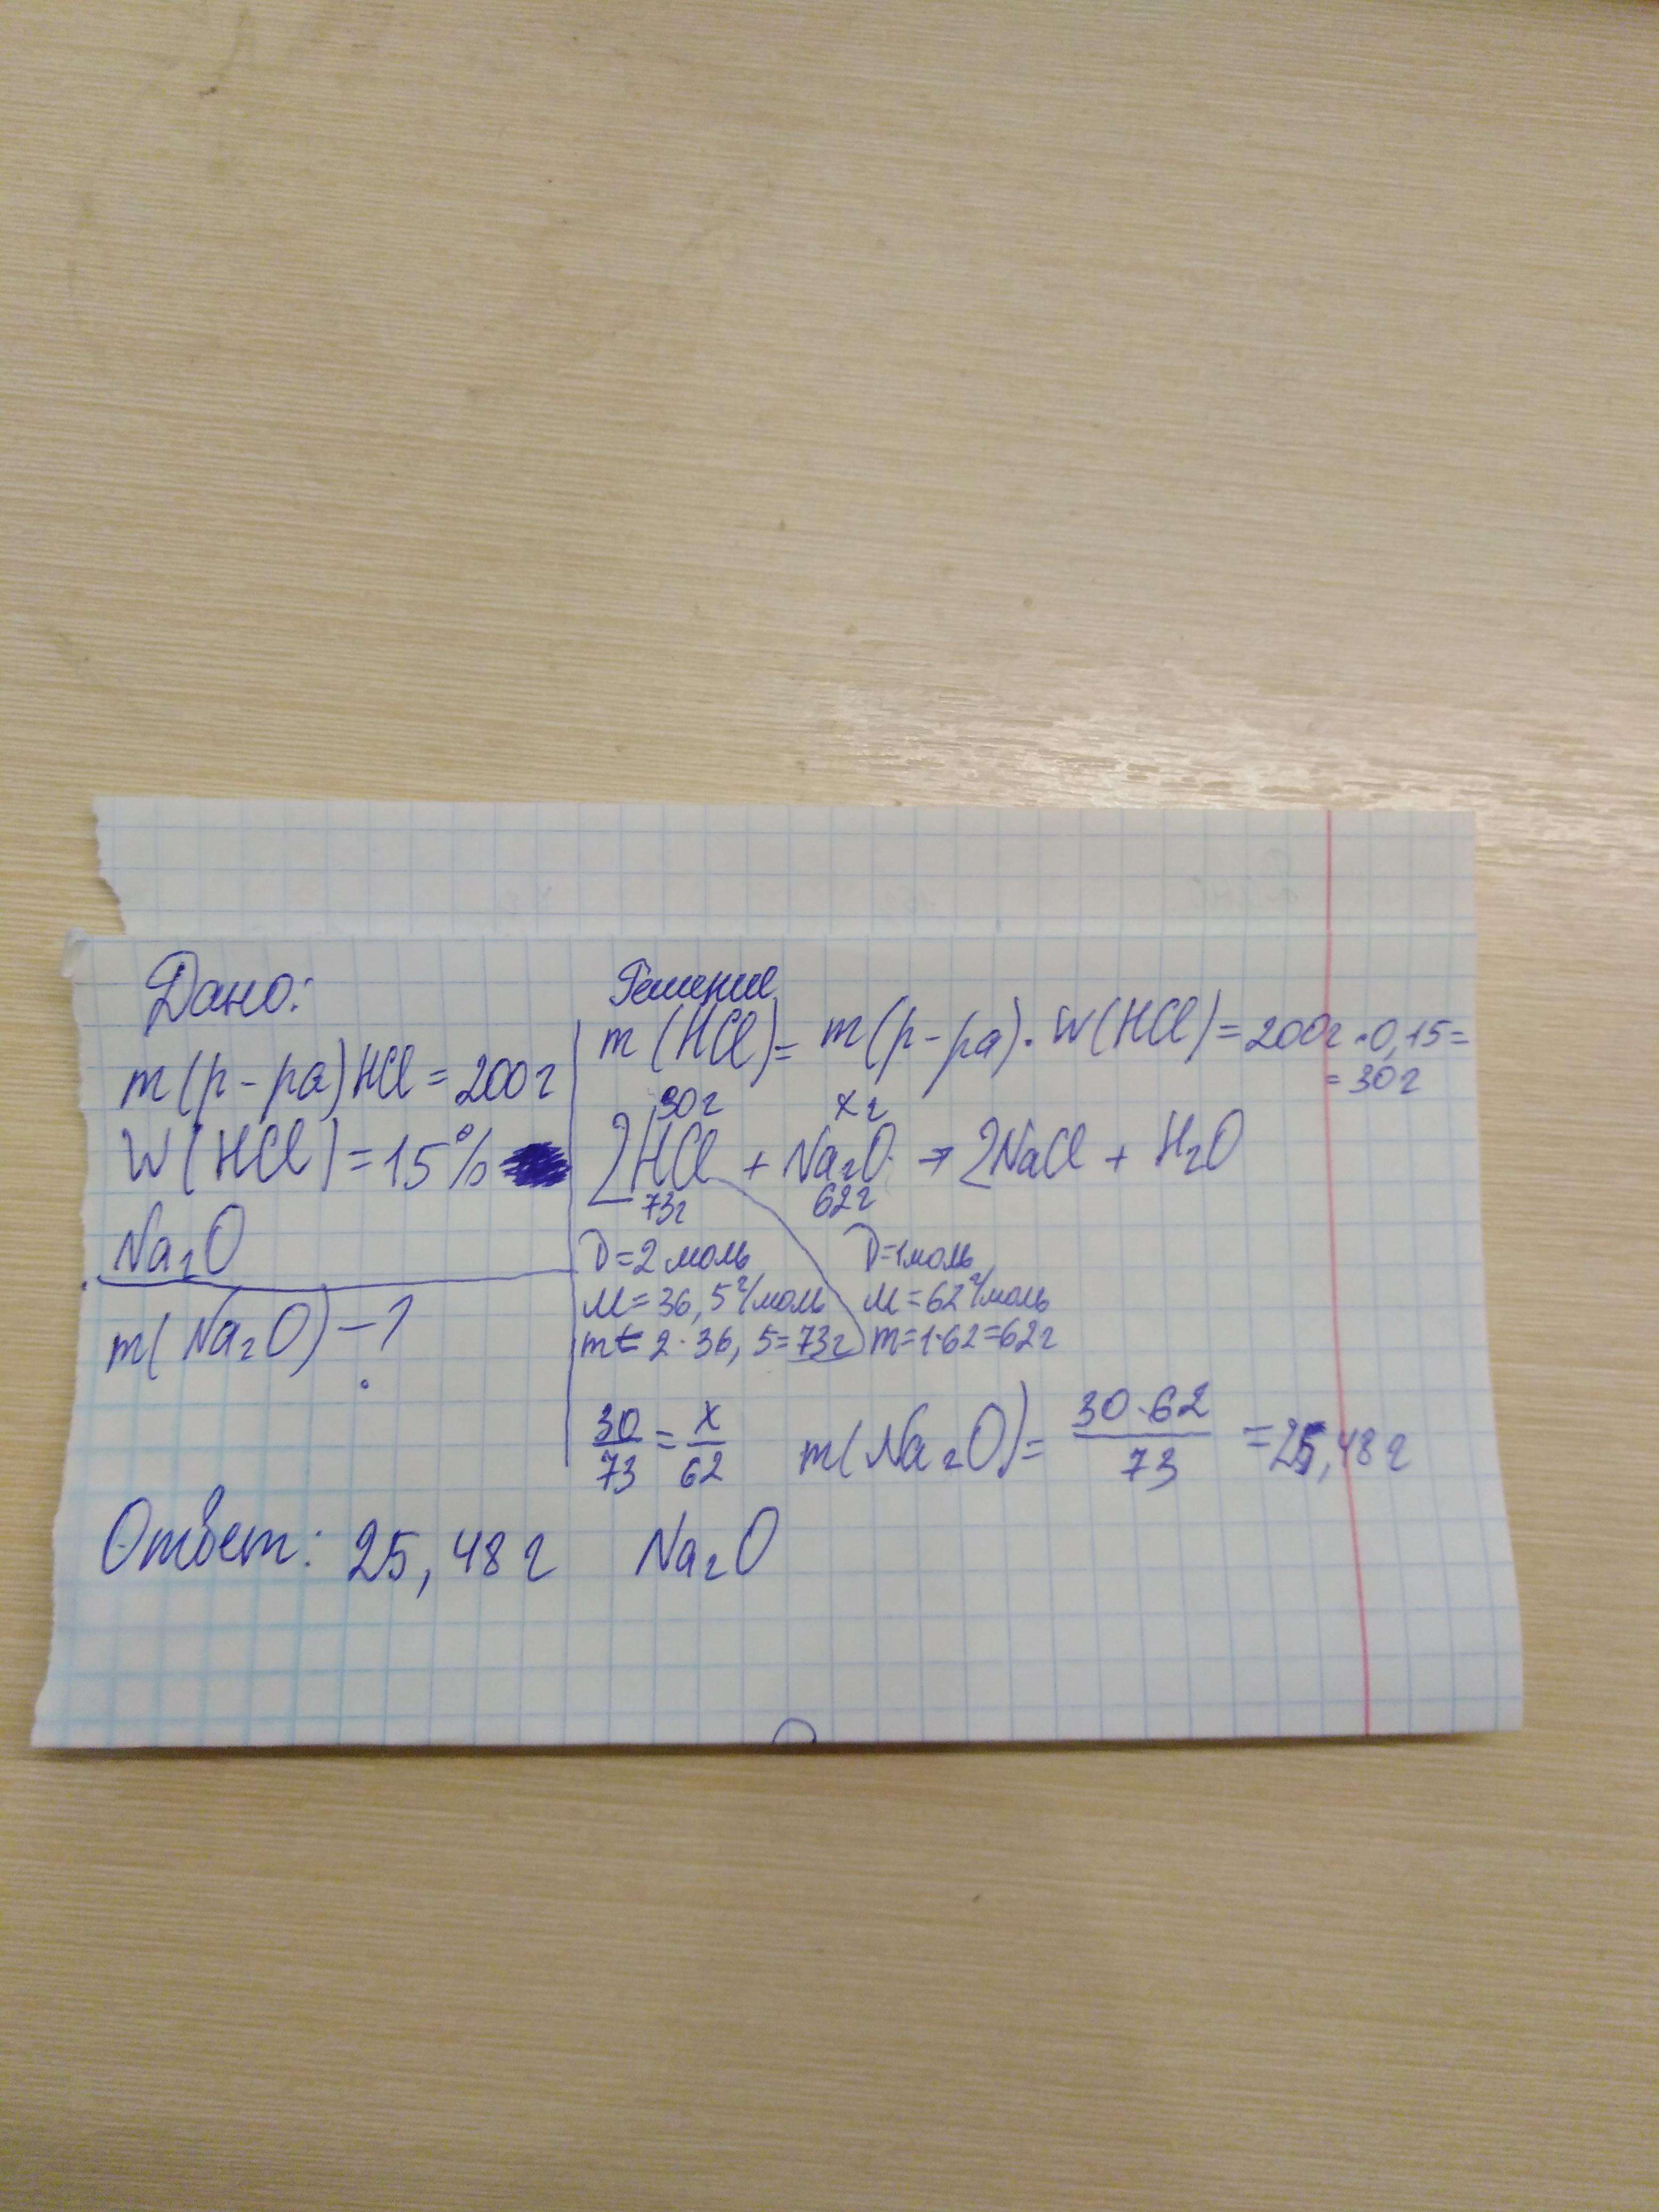 Дано:
m(р-ра)HCl=200г
W(HCl)=15%
Na₂O
m(Na₂O)-?
Решение
m(HCl)= m(р-ра)·W(HCl)=200г·0,15=
=30г
30г xг
2HCl + Na₂O → 2NaCl + H₂O
73г 62г
D=2моль D=1моль
M=36,5г/моль M=62г/моль
m=2·36,5=73г m=1·62=62г
30/73=x/62 m(Na₂O)=30·62/73=25,48г
Ответ: 25,48г Na₂O